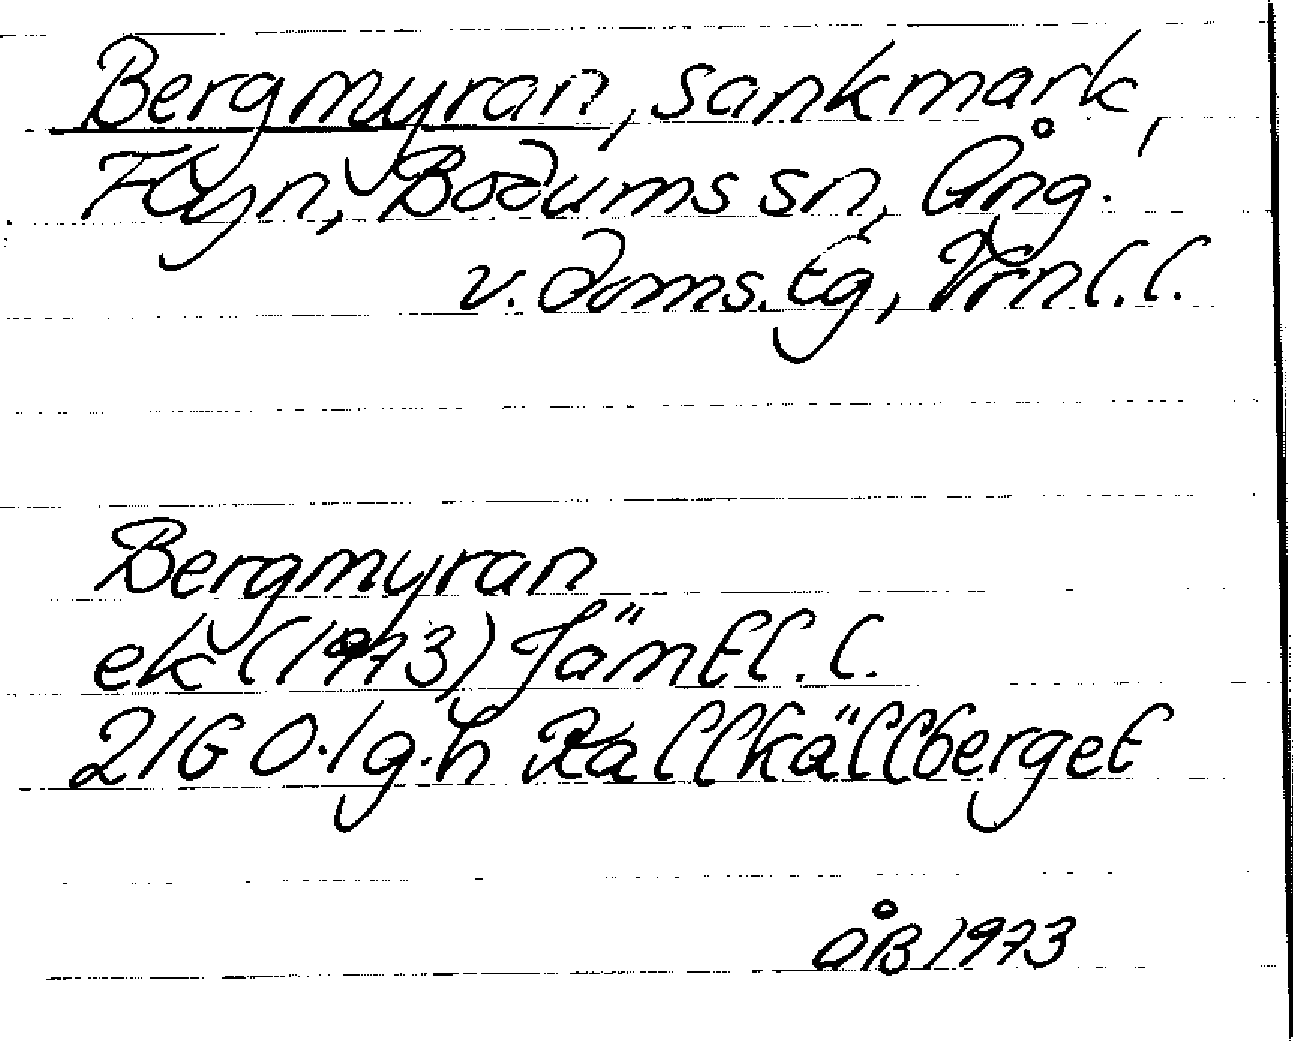 Bergmyran, sankmark,
Flyn, Bodums sn, Ång.
v. doms. tg, Vrnl. l.
Bergmyran
ek (1973) Jämtl. l.
21G 0-1 g-h Rallkällberget
ÅB 1973